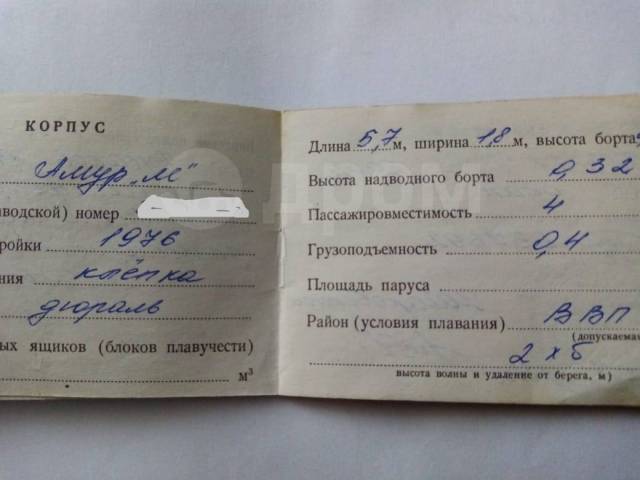 КОРПУС
Амур „М"
аводской) номер
ройки 1976
ния клёпка
дюраль
ых ящиков (блоков плавучести)
м³
Длина 5,7 м, ширина 1,8 м, высота борта
Высота надводного борта 0,32
Пассажировместимость 4
Грузоподъемность 0,4
Площадь паруса
Район (условия плавания) ВВП
(допускаемая
2 х б
высота волны и удаление от берега, м)
ДРОМ